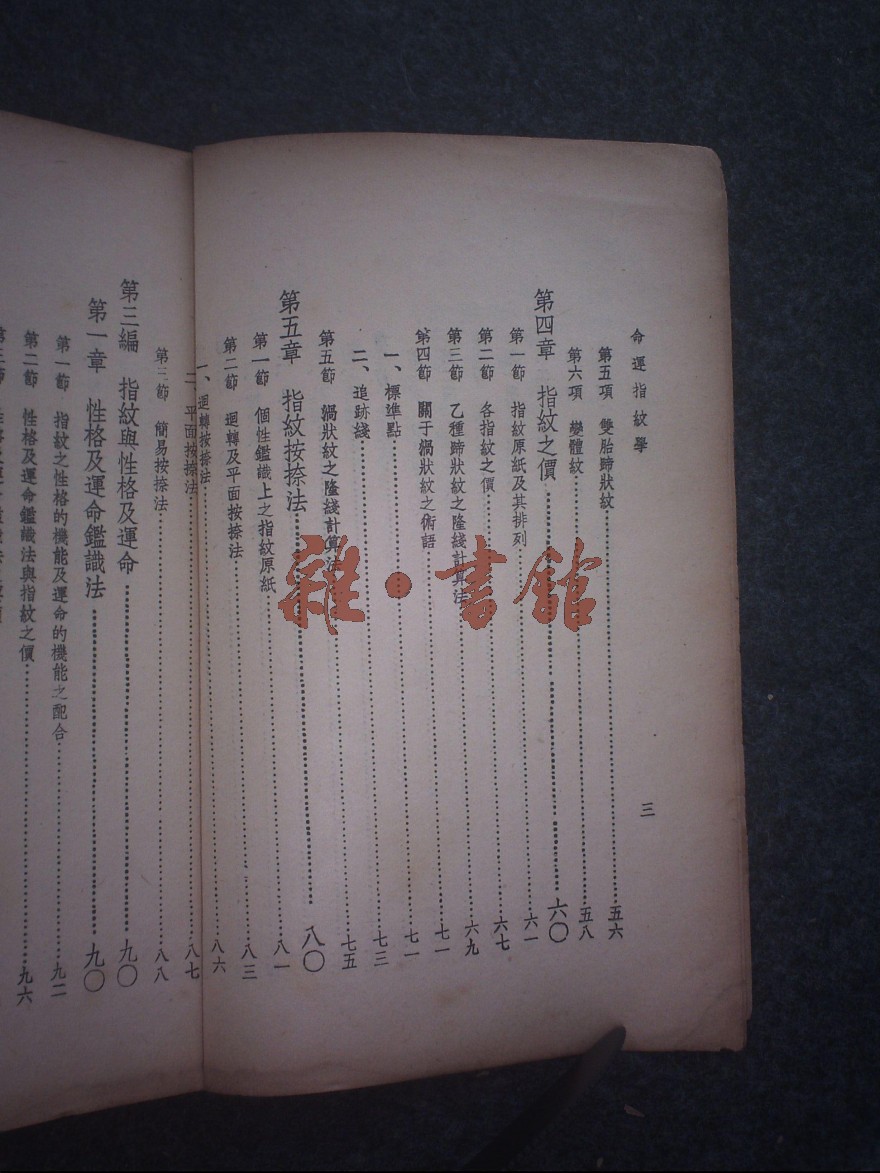 命運指紋學
三
第五項 雙胎蹄狀紋……五六
第六項 變體紋……五八
第四章 指紋之價……六〇
第一節 指紋原紙及其排列……六一
第二節 各指紋之價……六七
第三節 乙種蹄狀紋之隆綫計算法……六九
第四節 關于渦狀紋之術語……七一
一、標準點……七一
二、追跡綫……七三
第五節 渦狀紋之隆綫計算法……七五
第五章 指紋按捺法……八〇
第一節 個性鑑識上之指紋原紙……八一
第二節 迴轉及平面按捺法……八三
一、迴轉按捺法……八六
二、平面按捺法……八七
第三節 簡易按捺法……八八
第三編 指紋與性格及運命……九〇
第一章 性格及運命鑑識法……九〇
第一節 指紋之性格的機能及運命的機能之配合……九二
第二節 性格及運命鑑識法與指紋之價……九六
雜·書館